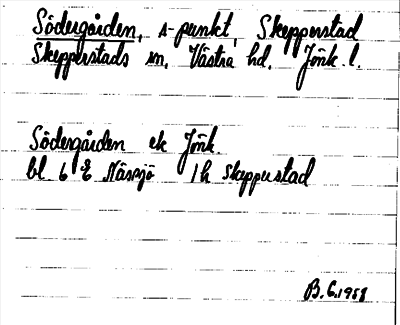 Södergården, s-punkt, Skepperstad
Skepperstads sn, Västra hd, Jönk.l.
Södergården ek Jönk.
bl 6 E Nässjö 1h Skepperstad
B.G.1959